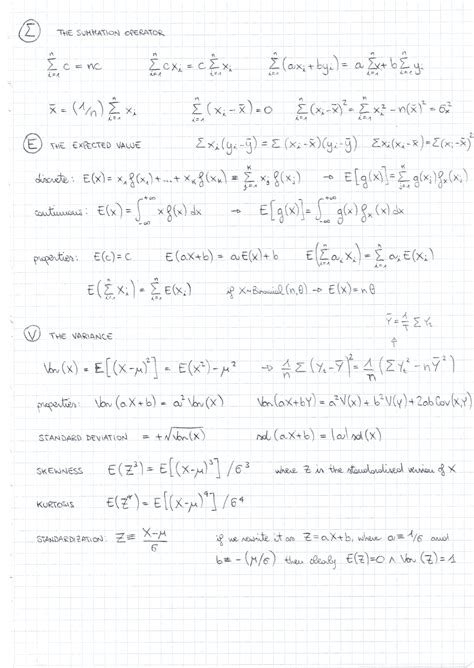 Σ THE SUMMATION OPERATOR
∑ᵢ₌₁ⁿ c = nc   ∑ᵢ₌₁ⁿ cxᵢ = c ∑ᵢ₌₁ⁿ xᵢ   ∑ᵢ₌₁ⁿ (axᵢ + byᵢ) = a ∑ᵢ₌₁ⁿ x + b ∑ᵢ₌₁ⁿ yᵢ
x̄ = (1/n) ∑ᵢ₌₁ⁿ xᵢ   ∑ᵢ₌₁ⁿ (xᵢ - x̄) = 0   ∑ᵢ₌₁ⁿ (xᵢ - x̄)² = ∑ᵢ₌₁ⁿ xᵢ² - n(x̄)² = σₓ²
E THE EXPECTED VALUE   Σxᵢ(yᵢ - ȳ) = Σ(xᵢ - x̄)(yᵢ - ȳ)   Σxᵢ(xᵢ - x̄) = Σ(xᵢ - x̄)²
discrete: E(X) = x₁f(x₁) + ... + xₖf(xₖ) ≡ ∑ⱼ₌₁ᵏ xⱼf(xⱼ) → E[g(X)] = ∑ⱼ₌₁ᵏ g(xⱼ)fₓ(xⱼ)
continuous: E(X) = ∫₋∞⁺∞ x f(x) dx → E[g(X)] = ∫₋∞⁺∞ g(x) fₓ(x) dx
properties: E(c) = c   E(aX+b) = aE(X) + b   E(∑ᵢ₌₁ⁿ aᵢXᵢ) = ∑ᵢ₌₁ⁿ aᵢE(Xᵢ)
E(∑ᵢ₌₁ⁿ Xᵢ) = ∑ᵢ₌₁ⁿ E(Xᵢ)   if X~Binomial(n,θ) → E(X) = nθ
Ȳ = 1/T Σ Yₜ
V THE VARIANCE
Var(X) = E[(X-μ)²] = E(X²) - μ² → 1/n Σ(Yₜ - Ȳ)² = 1/n (ΣYₜ² - nȲ²)
properties: Var(aX+b) = a²Var(X)   Var(aX+bY) = a²V(X) + b²V(Y) + 2ab Cov(X,Y)
STANDARD DEVIATION = +√Var(X)   sd(aX+b) = |a| sd(X)
SKEWNESS E(Z³) = E[(X-μ)³]/σ³   where Z is the standardised version of X
KURTOSIS E(Z⁴) = E[(X-μ)⁴]/σ⁴
STANDARDIZATION: Z ≡ X-μ/σ   if we rewrite it as Z = aX+b, where a ≡ 1/σ and
b ≡ -(μ/σ) then clearly E(Z) = 0 ∧ Var(Z) = 1